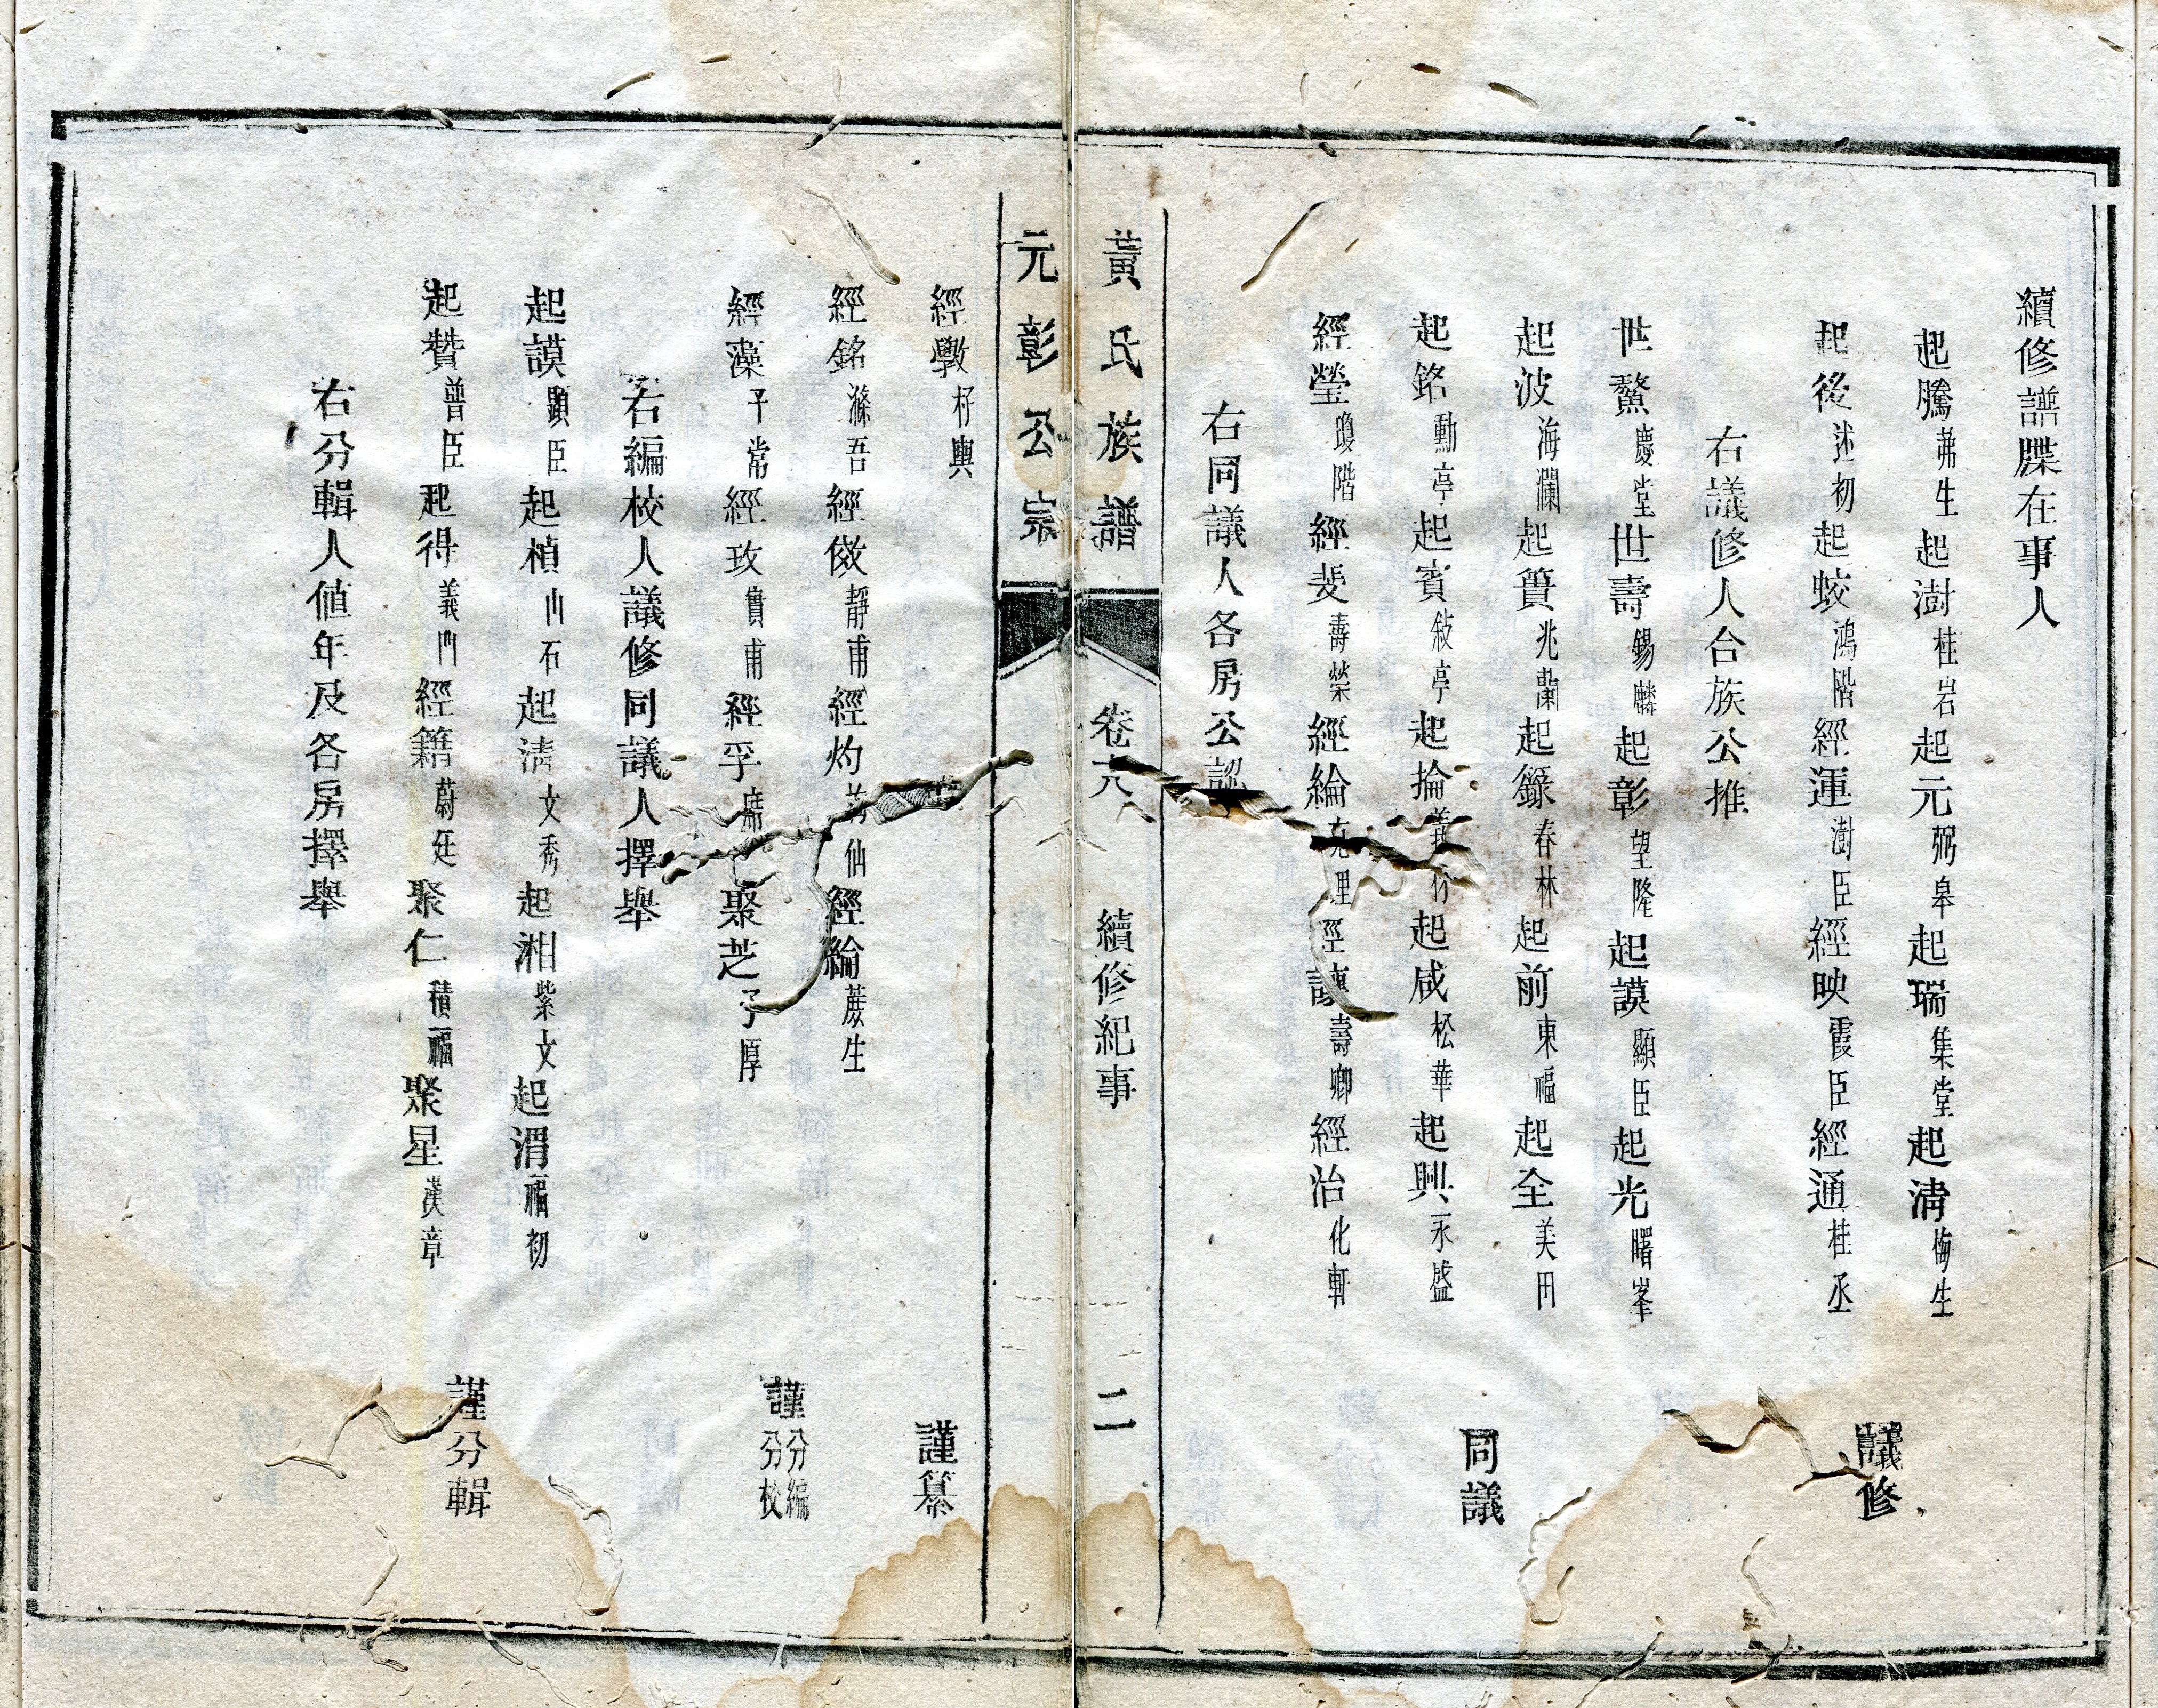 續修譜牒在事人
起騰茀生起澍桂岩起元弼皋起瑞集堂起淸梅生
起後述初起蛟鴻階經運澍臣經映霞臣經通桂丞
議修
右議修人合族公推
世鰲慶堂世壽錫麟起彰望隆起謨顯臣起光曙峯
起波海瀾起簣兆蘭起籙春林起前東福起全美田
同議
起銘勳亭起賓敍亭起掄義起咸松華起興永盛
經瑩瓊階經斐壽榮經綸理經諫壽卿經治化軒
右同議人各房公認
黃氏族譜 卷 續修紀事 二
元彰公宗
經斅杍輿
謹纂
經銘滌吾經儆靜甫經灼仙經綸蓘生
謹分編分校
經藻平常經玫實甫經孚聚芝予厚
右編校人議修同議人擇舉
起謨顯臣起楨山石起淸文秀起湘紫文起渭福初
謹分輯
起贊曾臣起得義門經籍蔚廷聚仁積福聚星漢章
右分輯人値年及各房擇舉